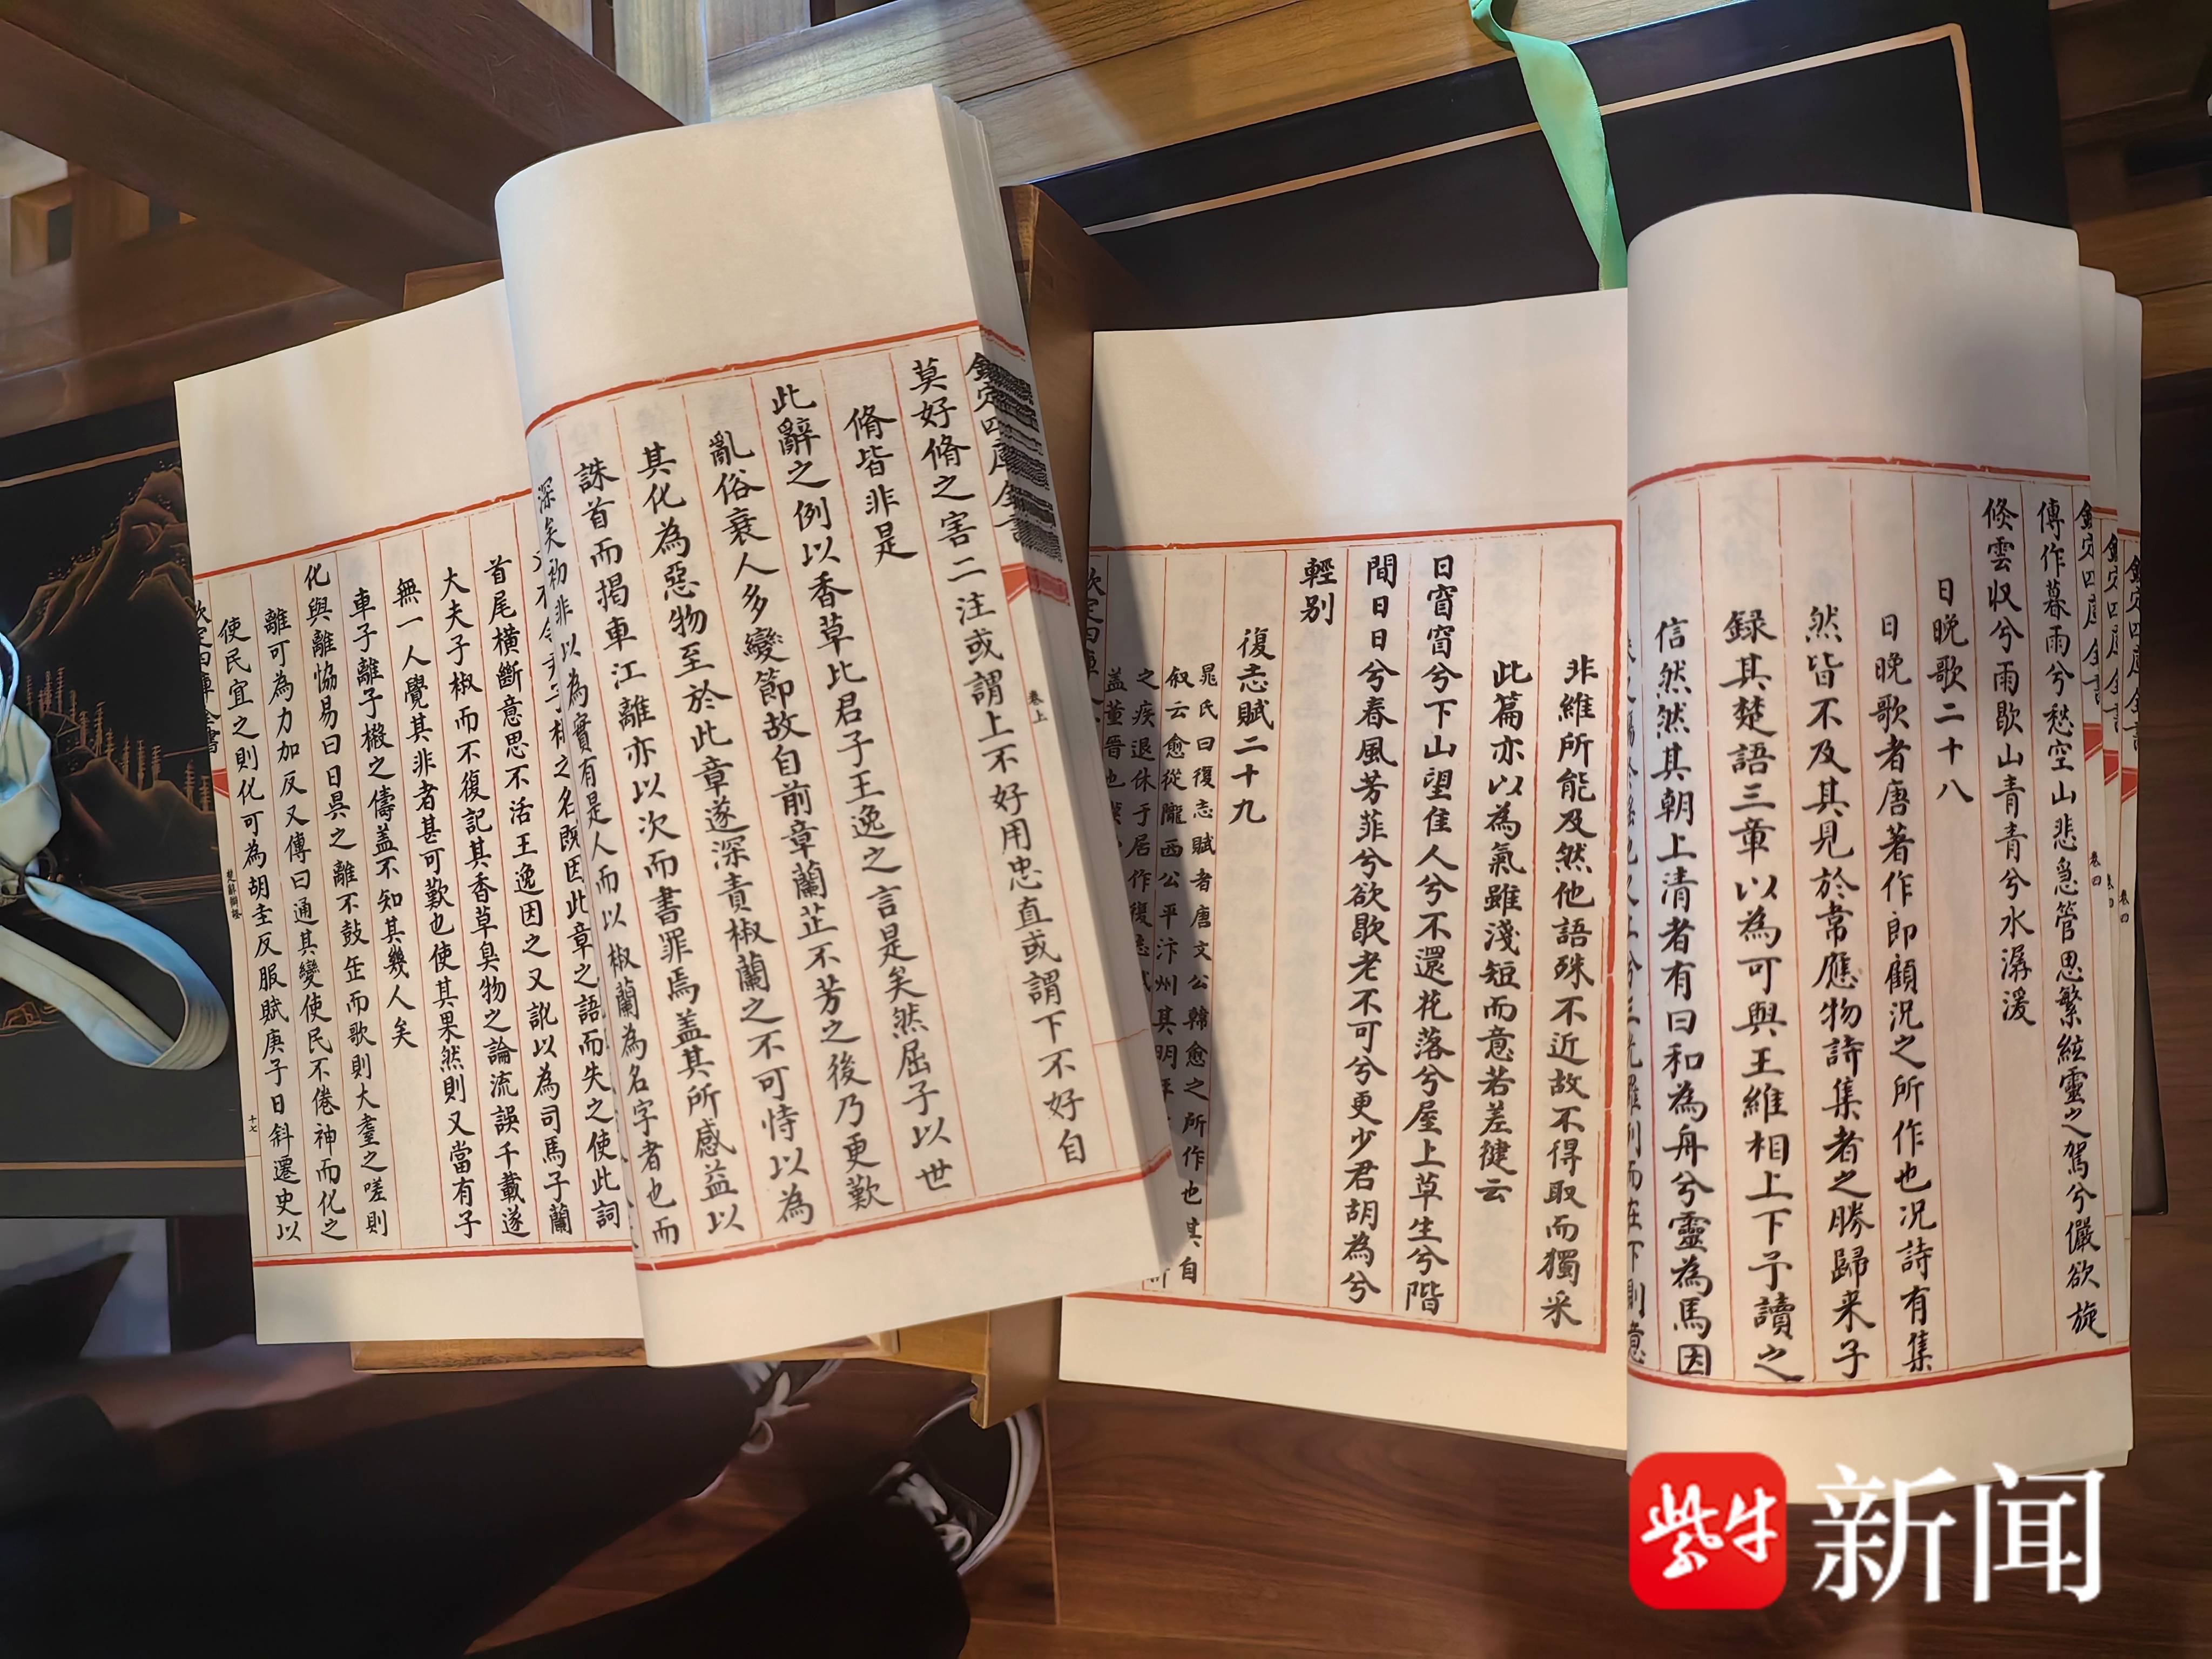 莫好脩之害二注或謂上不好用忠直或謂下不好自
脩皆非是
此辭之例以香草比君子王逸之言是矣然屈子以世
亂俗衰人多變節故自前章蘭芷不芳之後乃更歎
其化為惡物至於此章遂深責椒蘭之不可恃以為
誅首而揭車江離亦以次而書罪焉蓋其所感益以
深矣初非以為實有是人而以椒蘭為名字者也而
之名既因此章之語而失之使此詞
首尾橫斷意思不活王逸因之又訛以為司馬子蘭
大夫子椒而不復記其香草臭物之論流誤千載遂
無一人覺其非者甚可歎也使其果然則又當有子
車子離子樧之儔蓋不知其幾人矣
化與離協易曰日昃之離不鼓缶而歌則大耋之嗟則
離可為力加反又傳曰通其變使民不倦神而化之
使民宜之則化可為胡圭反服賦庚子日斜遷史以
欽定四庫全書
卷上
楚辭辯證
十七
欽定四庫全書
卷四
傳作暮雨兮愁空山悲急管思繁絃靈之駕兮儼欲旋
倐雲収兮雨歇山青青兮水潺湲
日晚歌二十八
日晚歌者唐著作郎顧況之所作也況詩有集
然皆不及其見於常應物詩集者之勝歸来子
録其楚語三章以為可與王維相上下予讀之
信然然其朝上清者有曰和為舟兮靈為馬因
非維所能及然他語殊不近故不得取而獨采
此篇亦以為氣雖淺短而意若差健云
日窅窅兮下山望佳人兮不還花落兮屋上草生兮階
間日日兮春風芳菲兮欲歇老不可兮更少君胡為兮
輕别
復志賦二十九
晁氏曰復志賦者唐文公韓愈之所作也其自
叙云愈從隴西公平汴州其明年
之疾退休于居作復志賦
蓋董晉也
紫牛新闻